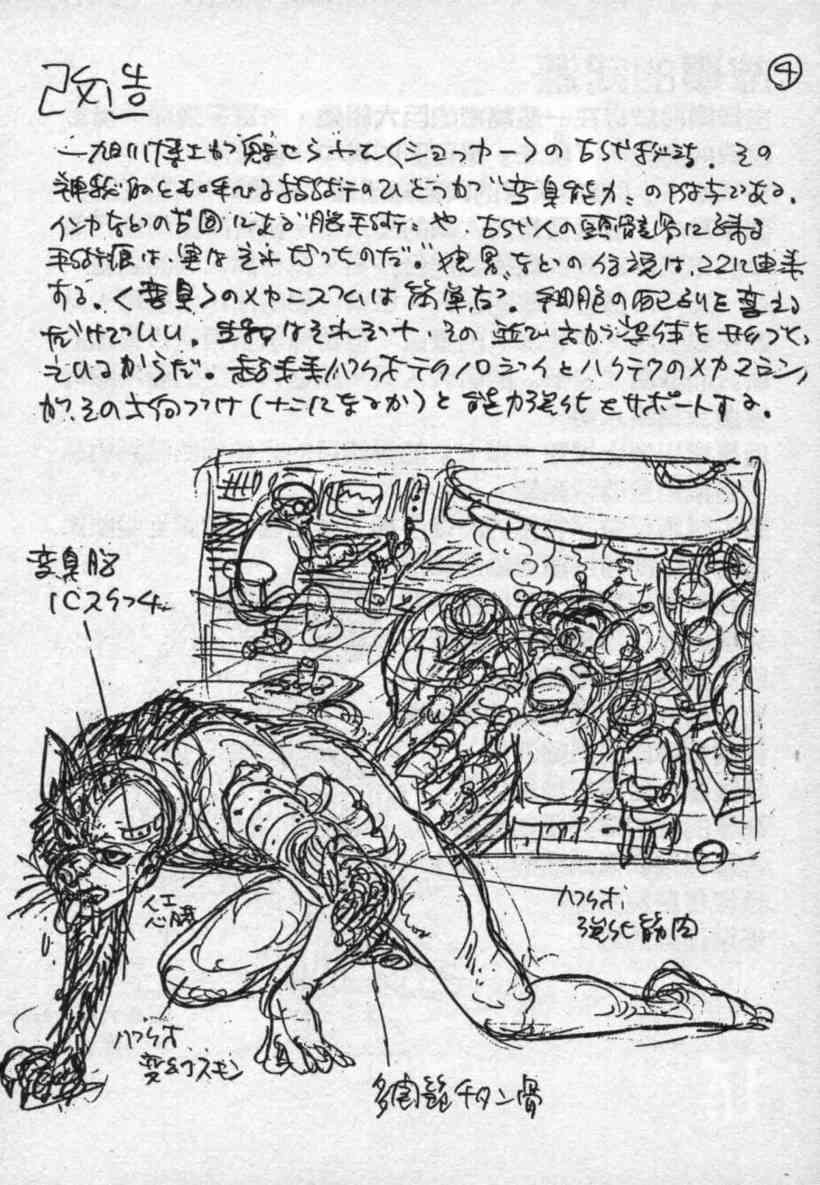 ④
改造
一旭川博士が魅せられた〈ショッカー〉の古代手術。その
神秘的とも呼べる技術のひとつが“変身能力”の附与である。
インカなどの古国による“脳手術”や、古代人の頭骸骨に残る
手術痕は、実はそれだったのだ。などの伝説は、ここに由来
する。〈変身〉のメカニズムは簡単だ。細胞の配列を変える
だけでいい。生物はそれぞれ、その並び方が一体を形づくっ
ているからだ。超未来バイオテクノロジイとハイテクのメカマシン
が、その方向づけ(なにになるか)と能力強化をサポートする。
変身脳
ICスイッチ
人工
心臓
バイオ
強化筋肉
バイオ
変身ホルモン
多関節チタン骨